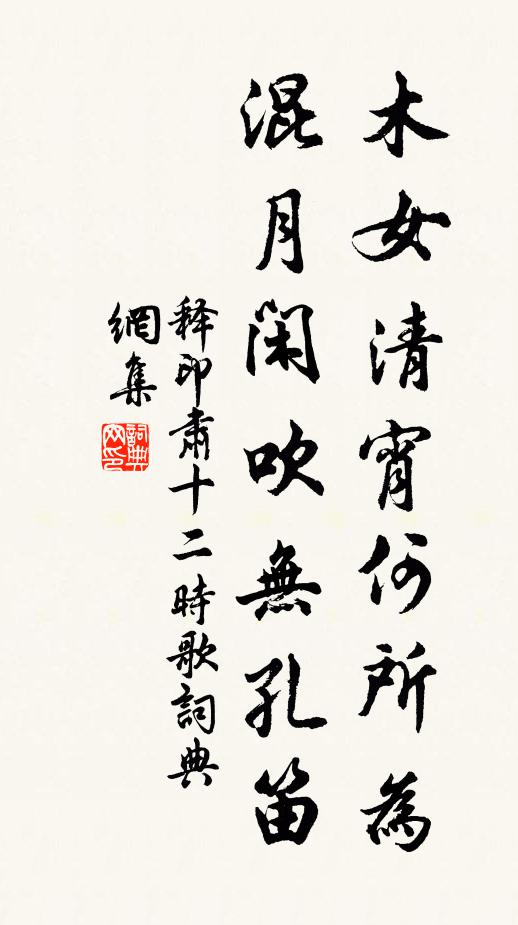 木女清宵何所為
混月閑吹無孔笛
釋印肅十二時歌詞典
網集
詞典網印